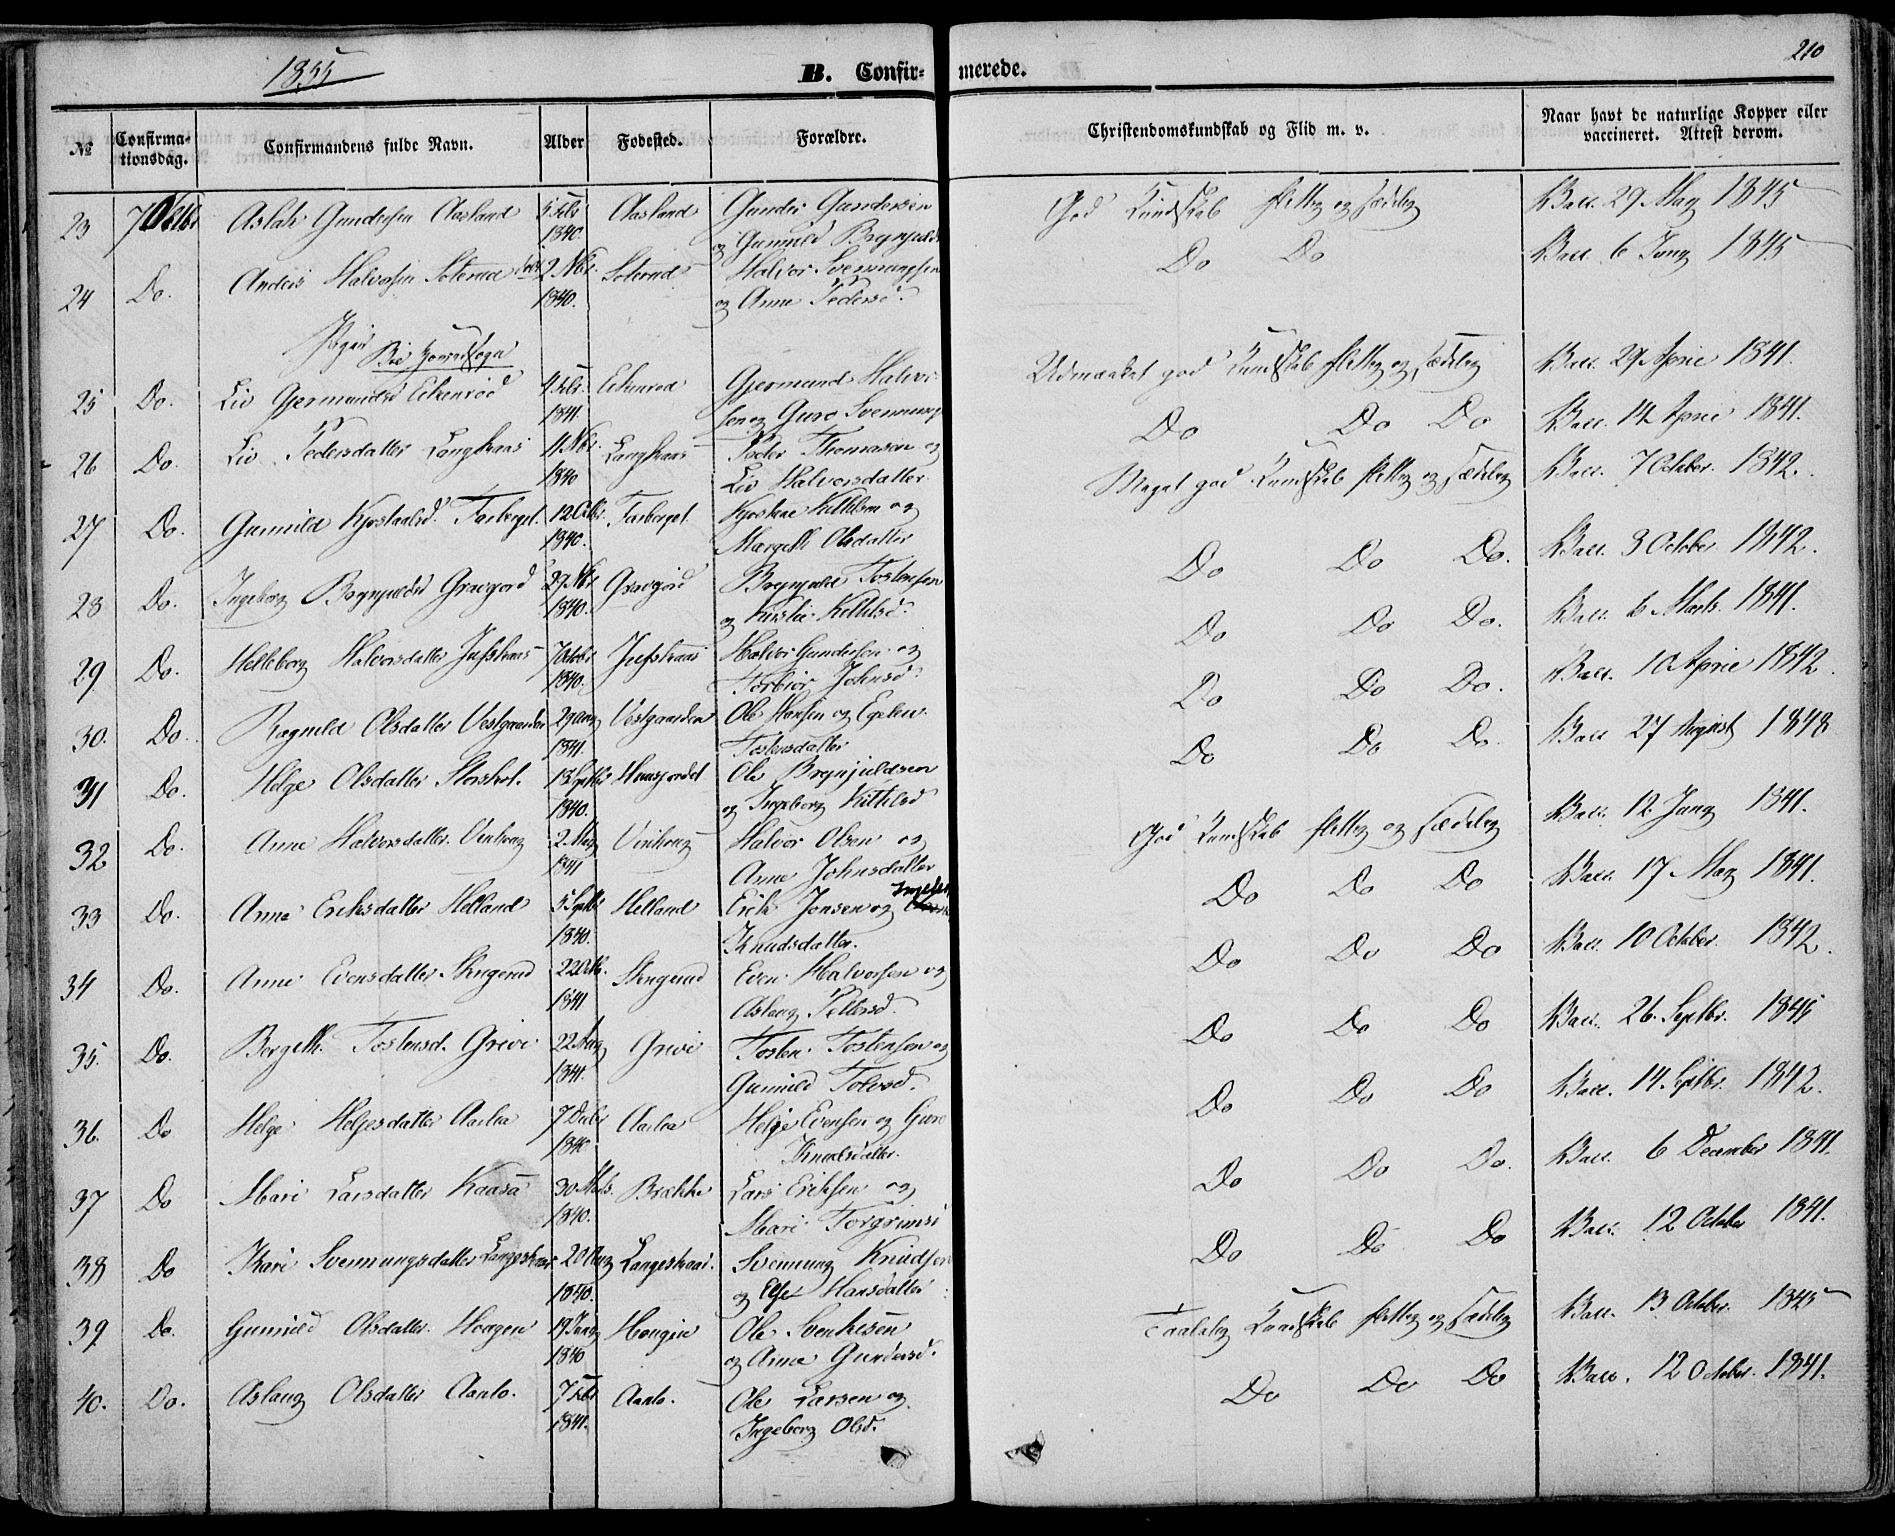 1855
B. Confir-
merede.
210
№
Confirma-
tionsdag.
Confirmandens fulde Navn.
Alder
Fødested.
Forældre.
Christendomskundskab og Flid m. v.
Naar havt de naturlige Kopper eller
vaccineret. Attest derom.
23 7 Octbr Aslak Gundersen Aasland 5 Febr 1840. Aasland Gunder Gundersen
og Gunnild Brynjulds
God Kundskab flittig og sædelig Vacc. 29 May 1845
24 Do. Anders Halvorsen Soterud 2 Nbr. 1840. Soterud Halvor Svennungsen
og Anne Pedersd.
Do Do Vacc. 6 Juny 1845
Piger
25 Do. Liv Gjermundsd Eikenrod 4 Febr 1841. Eikenrod Gjermund Halvor-
sen og Guro Svennung
Udmærket god Kundskab flittig og sædelig Vacc. 29 April 1841.
26 Do. Liv Pedersdatter Langkaas 11 Nbr. 1840 Langkaas Peder Thomasen og
Liv Halvorsdatter
Do Do Do Vacc. 14 April 1841.
27 Do. Gunnild Kjostaalsd. Farberget 12 Octbr. 1840. Farberget Kjostaal Kittilsen og
Margith Olsdatter
Meget god Kundskab flittig og sædelig Vacc. 7 October. 1842.
28 Do. Ingeborg Brynjulds Gravgord 27 Nbr 1840. Gravgord Brynjuld Tostensen
og Kirstie Kittilsd.
Do Do Do. Vacc. 3 October 1842.
29 Do. Helleborg Halvorsdatter 7 Octobr 1840. Halvor Gundersen og
Torbior Johnsd.
Do Do Do. Vacc. 6 Marts. 1841.
30. Do. Ragnild Olsdatter Vestgaarden 29 1841. Vestgaarden Ole Hansen og
Tostensdatter
Do Do Do. Vacc. 10 April 1842
31 Do. Helge Olsdatter 13 Septbr 1840. Ole Brynjuldsen
og Ingeborg Kittilsd
Do Do Do. Vacc. 27 August 1848
32 Do. Anne Halvorsdatter. Vinhoug 2. May 1841 Vinhoug Halvor Olsen og
Anne Johnsdatter
God Kundskab flittig og sædelig Vacc. 12 Juny 1841.
33 Do. Anne Eriksdatter Helland 5 Septbr 1840. Helland Erik Jonsen og
Knudsdatter.
Do Do Do Vacc. 17 May 1841.
34 Do. Anne Evensdatter Stengerud 22 1841 Stengerud Even Halvorsen og
Aslaug
Do Do Do Vacc. 10 October. 1842.
35. Do. Bergith Tostensd. Grivi 22 1841. Grivi Tosten Tostensen og
Gunnild Tolvsd.
Do Do Do Vacc. 26. Septbr. 1845
36. Do Helge Helgesdatter 7 Decbr 1840. Helge Evensen og Guro
Knudsdatter.
Do Do Do Vacc. 14 Septbr. 1842.
37 Do Mari Larsdatter Kaasa 30 1840. Brekke Lars Eriksen og
Mari Torgrims
Do Do Do. Vacc. 6 December 1841.
38 Do Kari Svennungsdatter Langeskaas 20 Aug 1840. Langeskaas. Svennung Knudsen
og Else Hansdatter
Do Do Do Vacc. 12 October 1841.
39 Do. Gunnild Olsdatter. Haagen 19 1840 Haugen Ole Svenkesen
og Anne Gundersd.
Taalelig Kundskab flittig og sædelig Vacc. 13 October. 1845
40. Do. Aslaug Olsdatter Aanlo. 7 Febr 1841. Aanlo. Ole Larsen og
Ingeborg Olsd.
Do Do Do Vacc. 12 October. 1841.